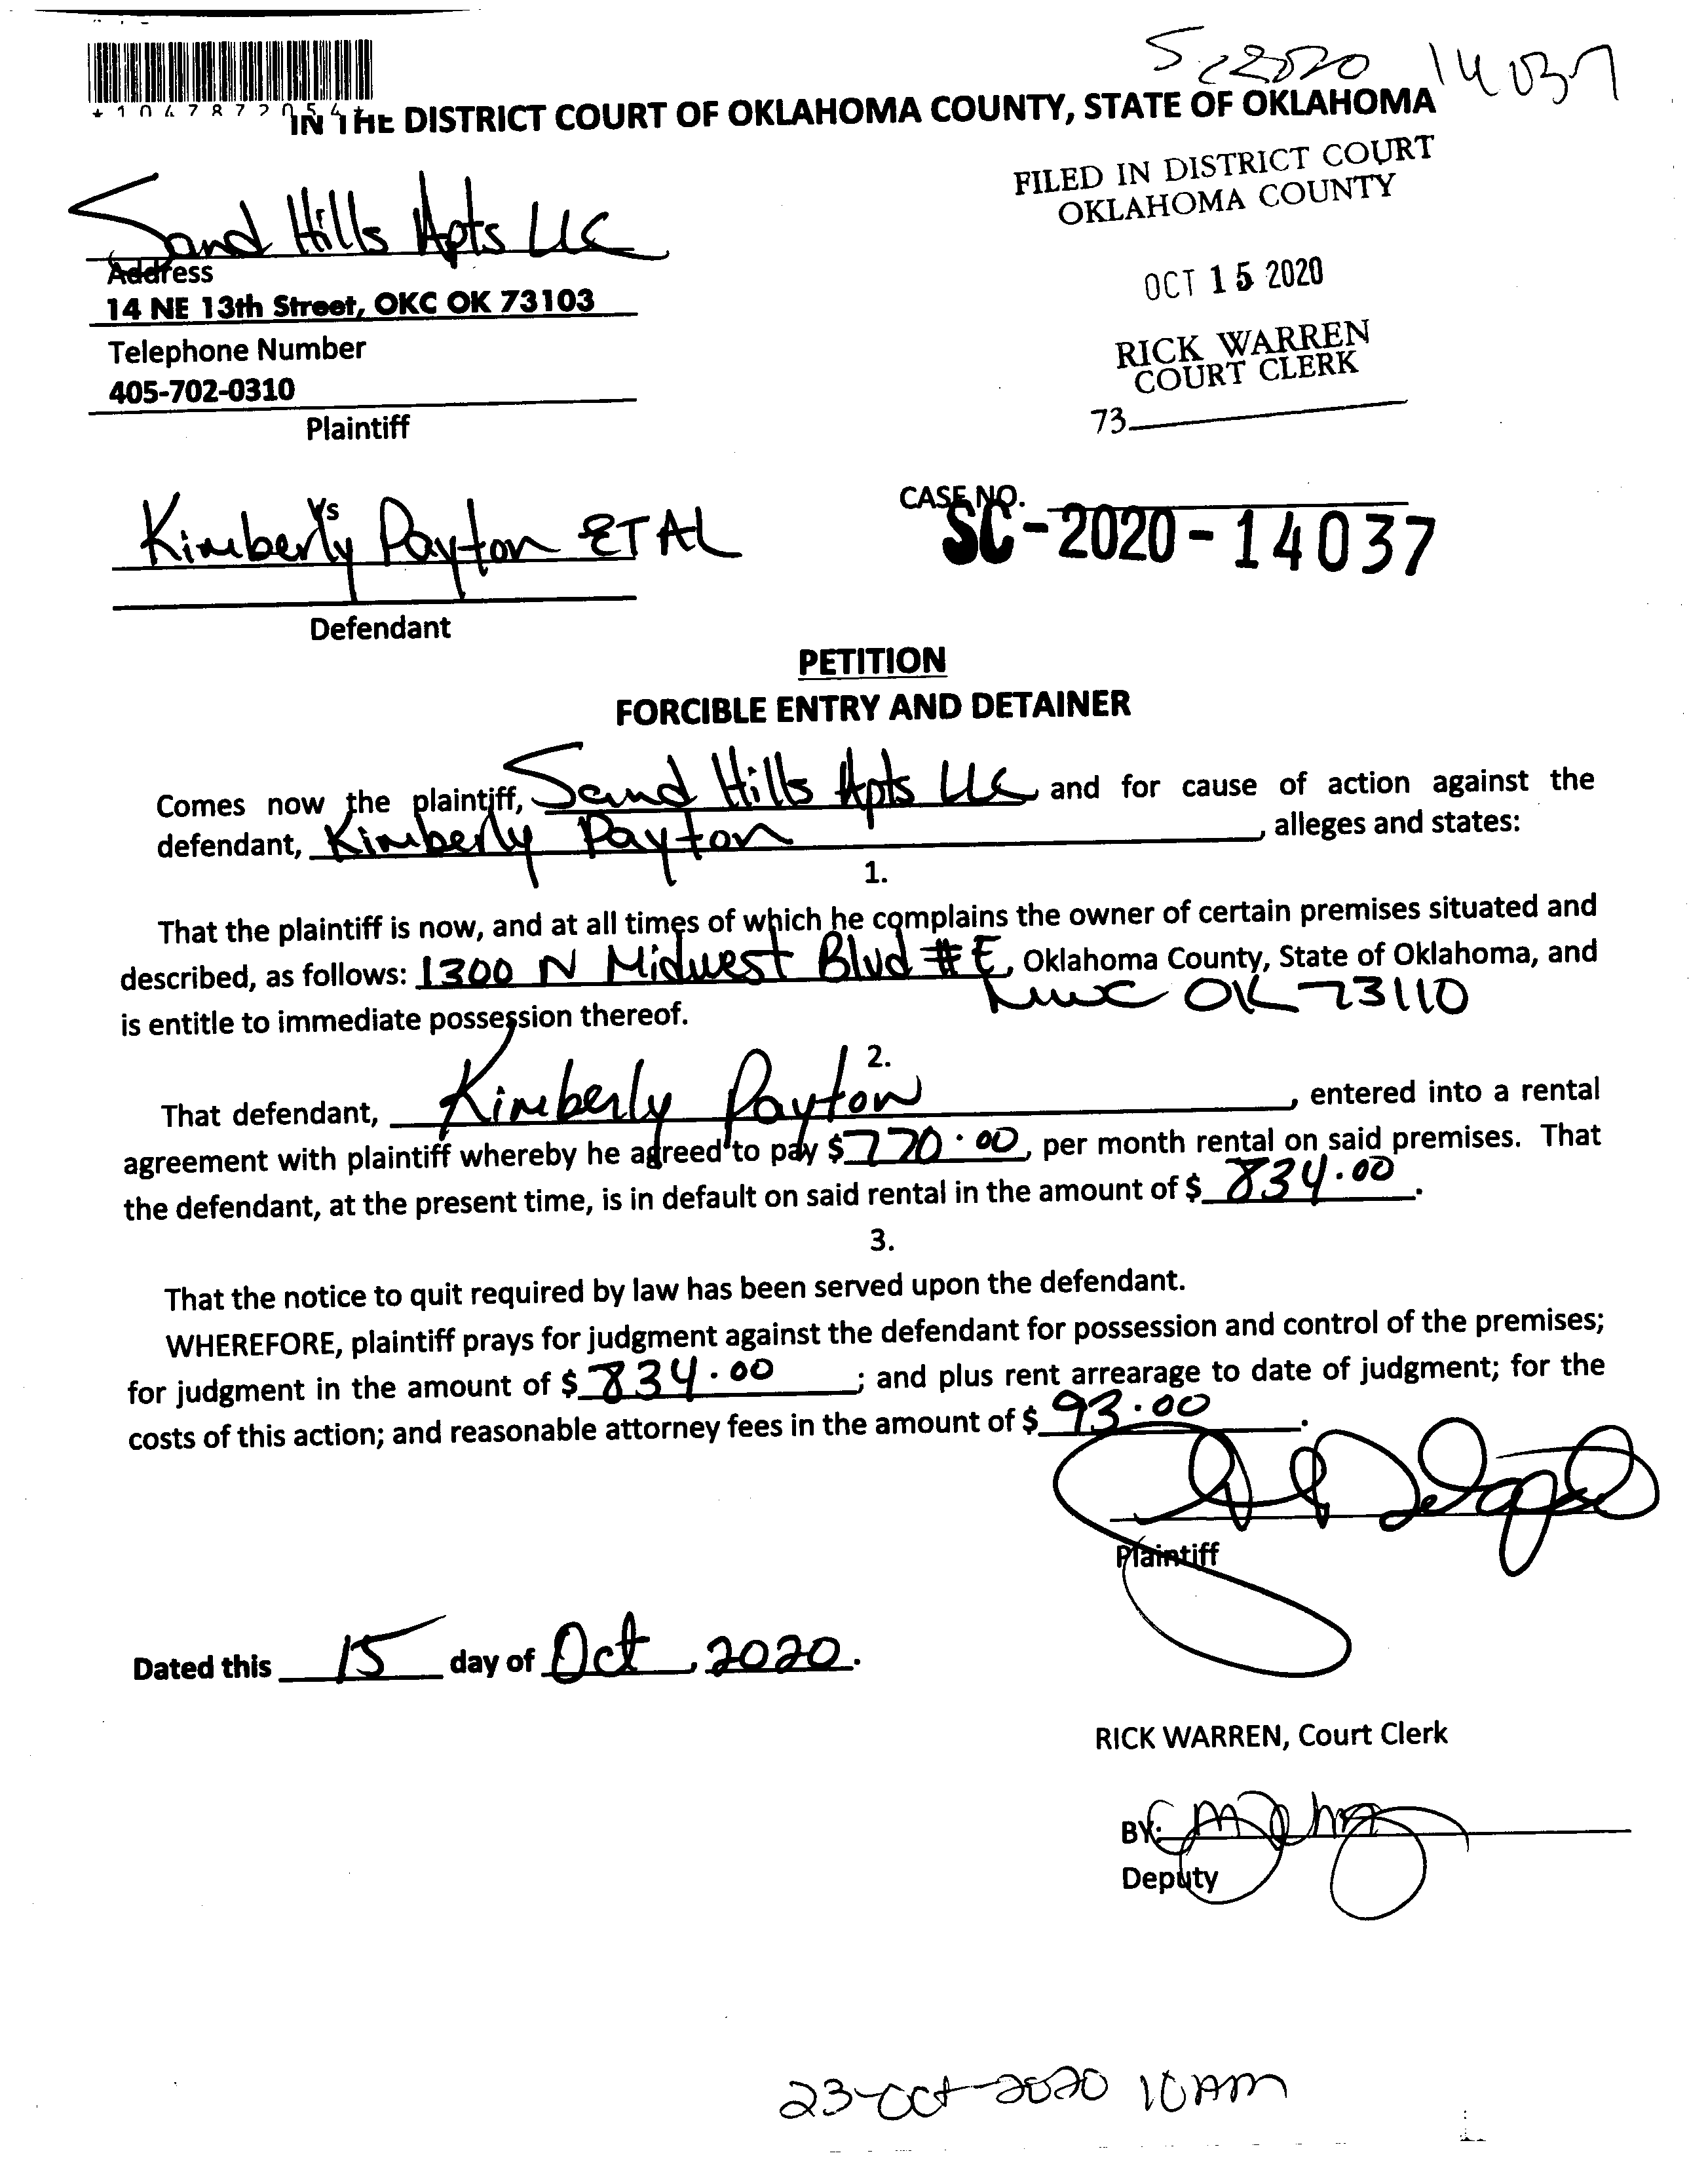 SC2020 14037
*1047872054*
IN THE DISTRICT COURT OF OKLAHOMA COUNTY, STATE OF OKLAHOMA
FILED IN DISTRICT COURT
OKLAHOMA COUNTY
OCT 15 2020
RICK WARREN
COURT CLERK
73
Sand Hills Apts LLC
Address
14 NE 13th Street, OKC OK 73103
Telephone Number
405-702-0310
Plaintiff
Vs
Kimberly Payton ETAL
Defendant
CASE NO.
SC-2020-14037
PETITION
FORCIBLE ENTRY AND DETAINER
Comes now the plaintiff, Sand Hills Apts LLC and for cause of action against the
defendant, Kimberly Payton, alleges and states:
1.
That the plaintiff is now, and at all times of which he complains the owner of certain premises situated and
described, as follows: 1300 N Midwest Blvd #E, Oklahoma County, State of Oklahoma, and
OK 73110
is entitle to immediate possession thereof.
2.
That defendant, Kimberly Payton, entered into a rental
agreement with plaintiff whereby he agreed to pay $770.00, per month rental on said premises. That
the defendant, at the present time, is in default on said rental in the amount of $834.00.
3.
That the notice to quit required by law has been served upon the defendant.
WHEREFORE, plaintiff prays for judgment against the defendant for possession and control of the premises;
for judgment in the amount of $834.00; and plus rent arrearage to date of judgment; for the
costs of this action; and reasonable attorney fees in the amount of $93.00.
Plaintiff
Dated this 15 day of Oct, 2020.
RICK WARREN, Court Clerk
BY:
Deputy
23-Oct-2020 10AM